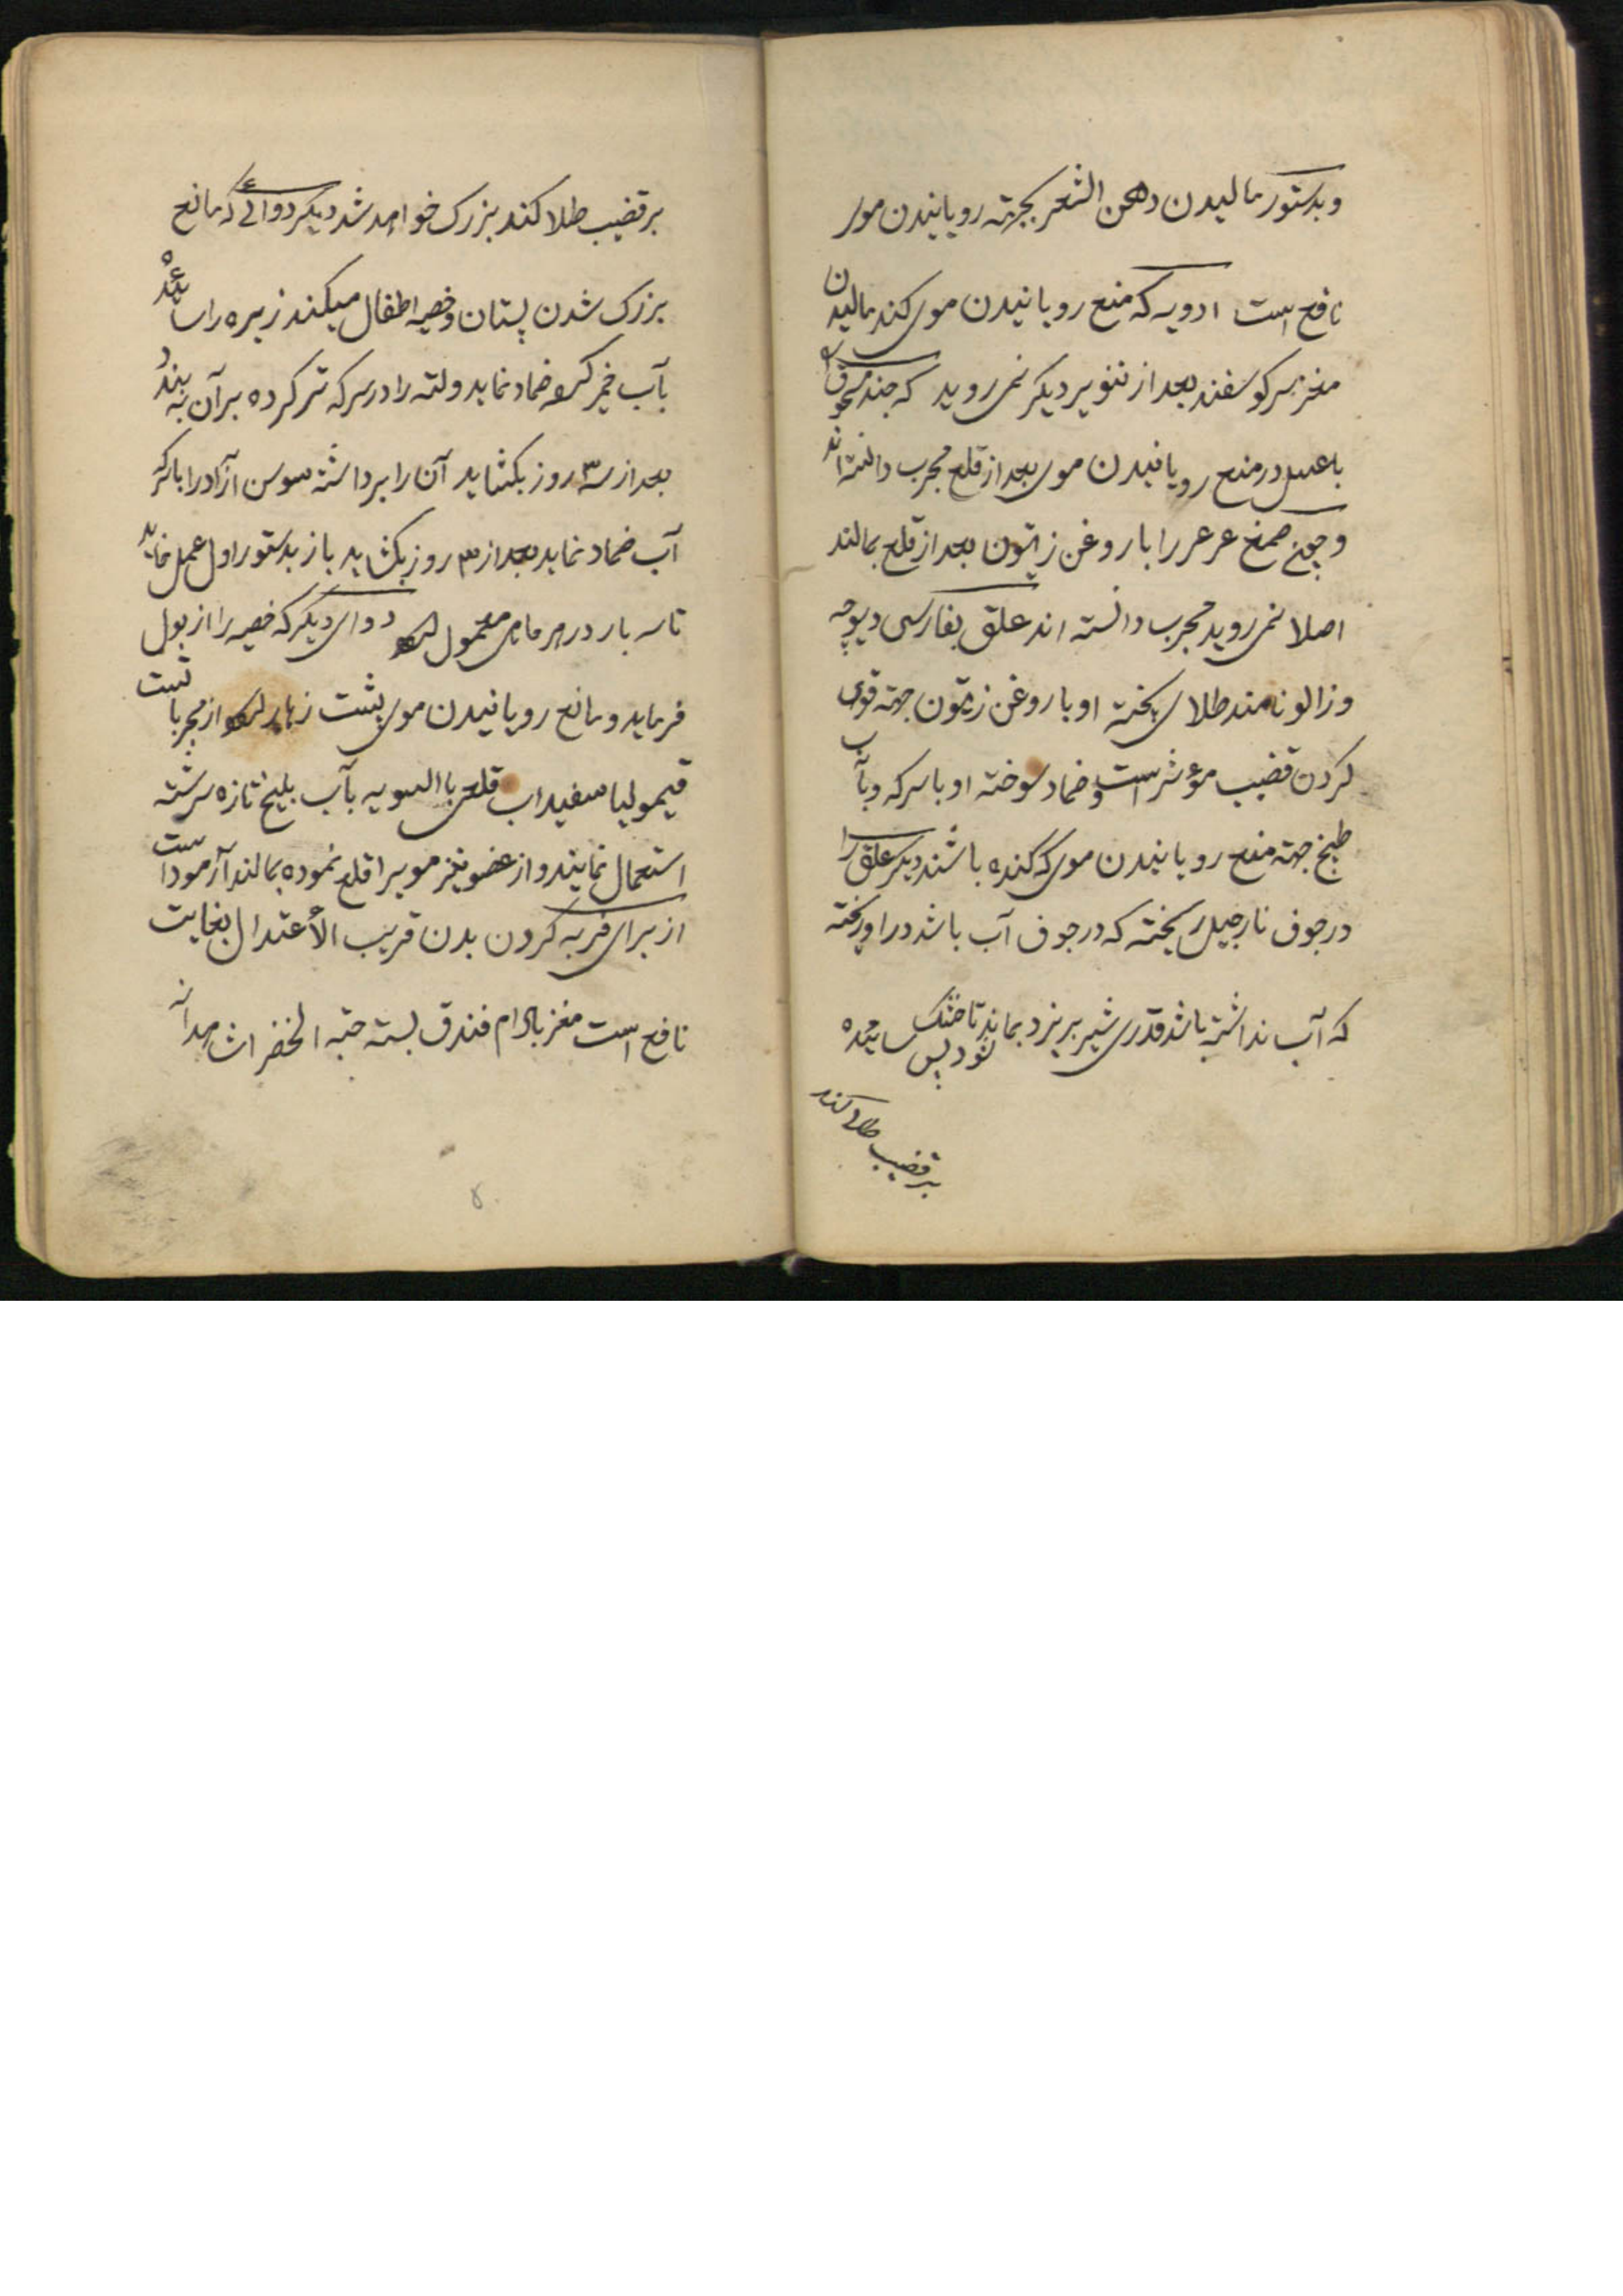 وبدستور مالیدن دهن الشعر بجهته رویانیدن موی
نافع است ادویه که منع رویانیدن موی کند مالیدن
مغز سر کوسفند بعد از تنویر دیکر نمی روید که جند مسحوق
با عسل در منع رویانیدن موی بعد از قلع مجرب دانسته اند
و چون صمغ عرعر را با روغن زیتون بعد از قلع بمالند
اصلا نمی روید مجرب دانسته اند علق بفارسی دیوچه
و زالو نامند طلای پخته او با روغن زیتون جهته قوی
کردن قضیب مؤثر است و ضماد سوخته او با سرکه و بآب
طبخ جهته منع رویانیدن موی که کنده باشند دیکر علق را
در جوف نارجیل ریخته که در جوف آب باشد در او ریخته
که آب نداشته باشد قدری شیر بریزد بماند تا خشک شود پس سائیده
بر قضیب طلا کند
بر قضیب طلا کند بزرک خواهد شد دیکر دوائی که مانع
بزرک شدن پستان و خصیه اطفال میکند زیره را سائیده
بآب خمیر کرده ضماد نماید ولته را در سرکه تر کرده بر آن به بندد
بعد از سه روز بکشاید آن را برداشته سوسن آزاد را با سرکه
آب ضماد نماید بعد از ۳ روز بکشاید باز بدستور اول عمل نماید
تا سه بار در هر ماهی معمول دوای دیکر که خصیه را از بول
فرماید و مانع رویانیدن موی پشت زهار از مجربا تست
قیمولیا سفیداب قلعی بالسویه بآب بلیخ تازه سرشته
استعمال نمایند و از عضو نیز مویرا قلع نموده بمالند آزموداست
از برای فربه کردن بدن قریب الأعتدال بغایت
نافع است مغز بادام فندق پسته حبه الخضرا شهدانه